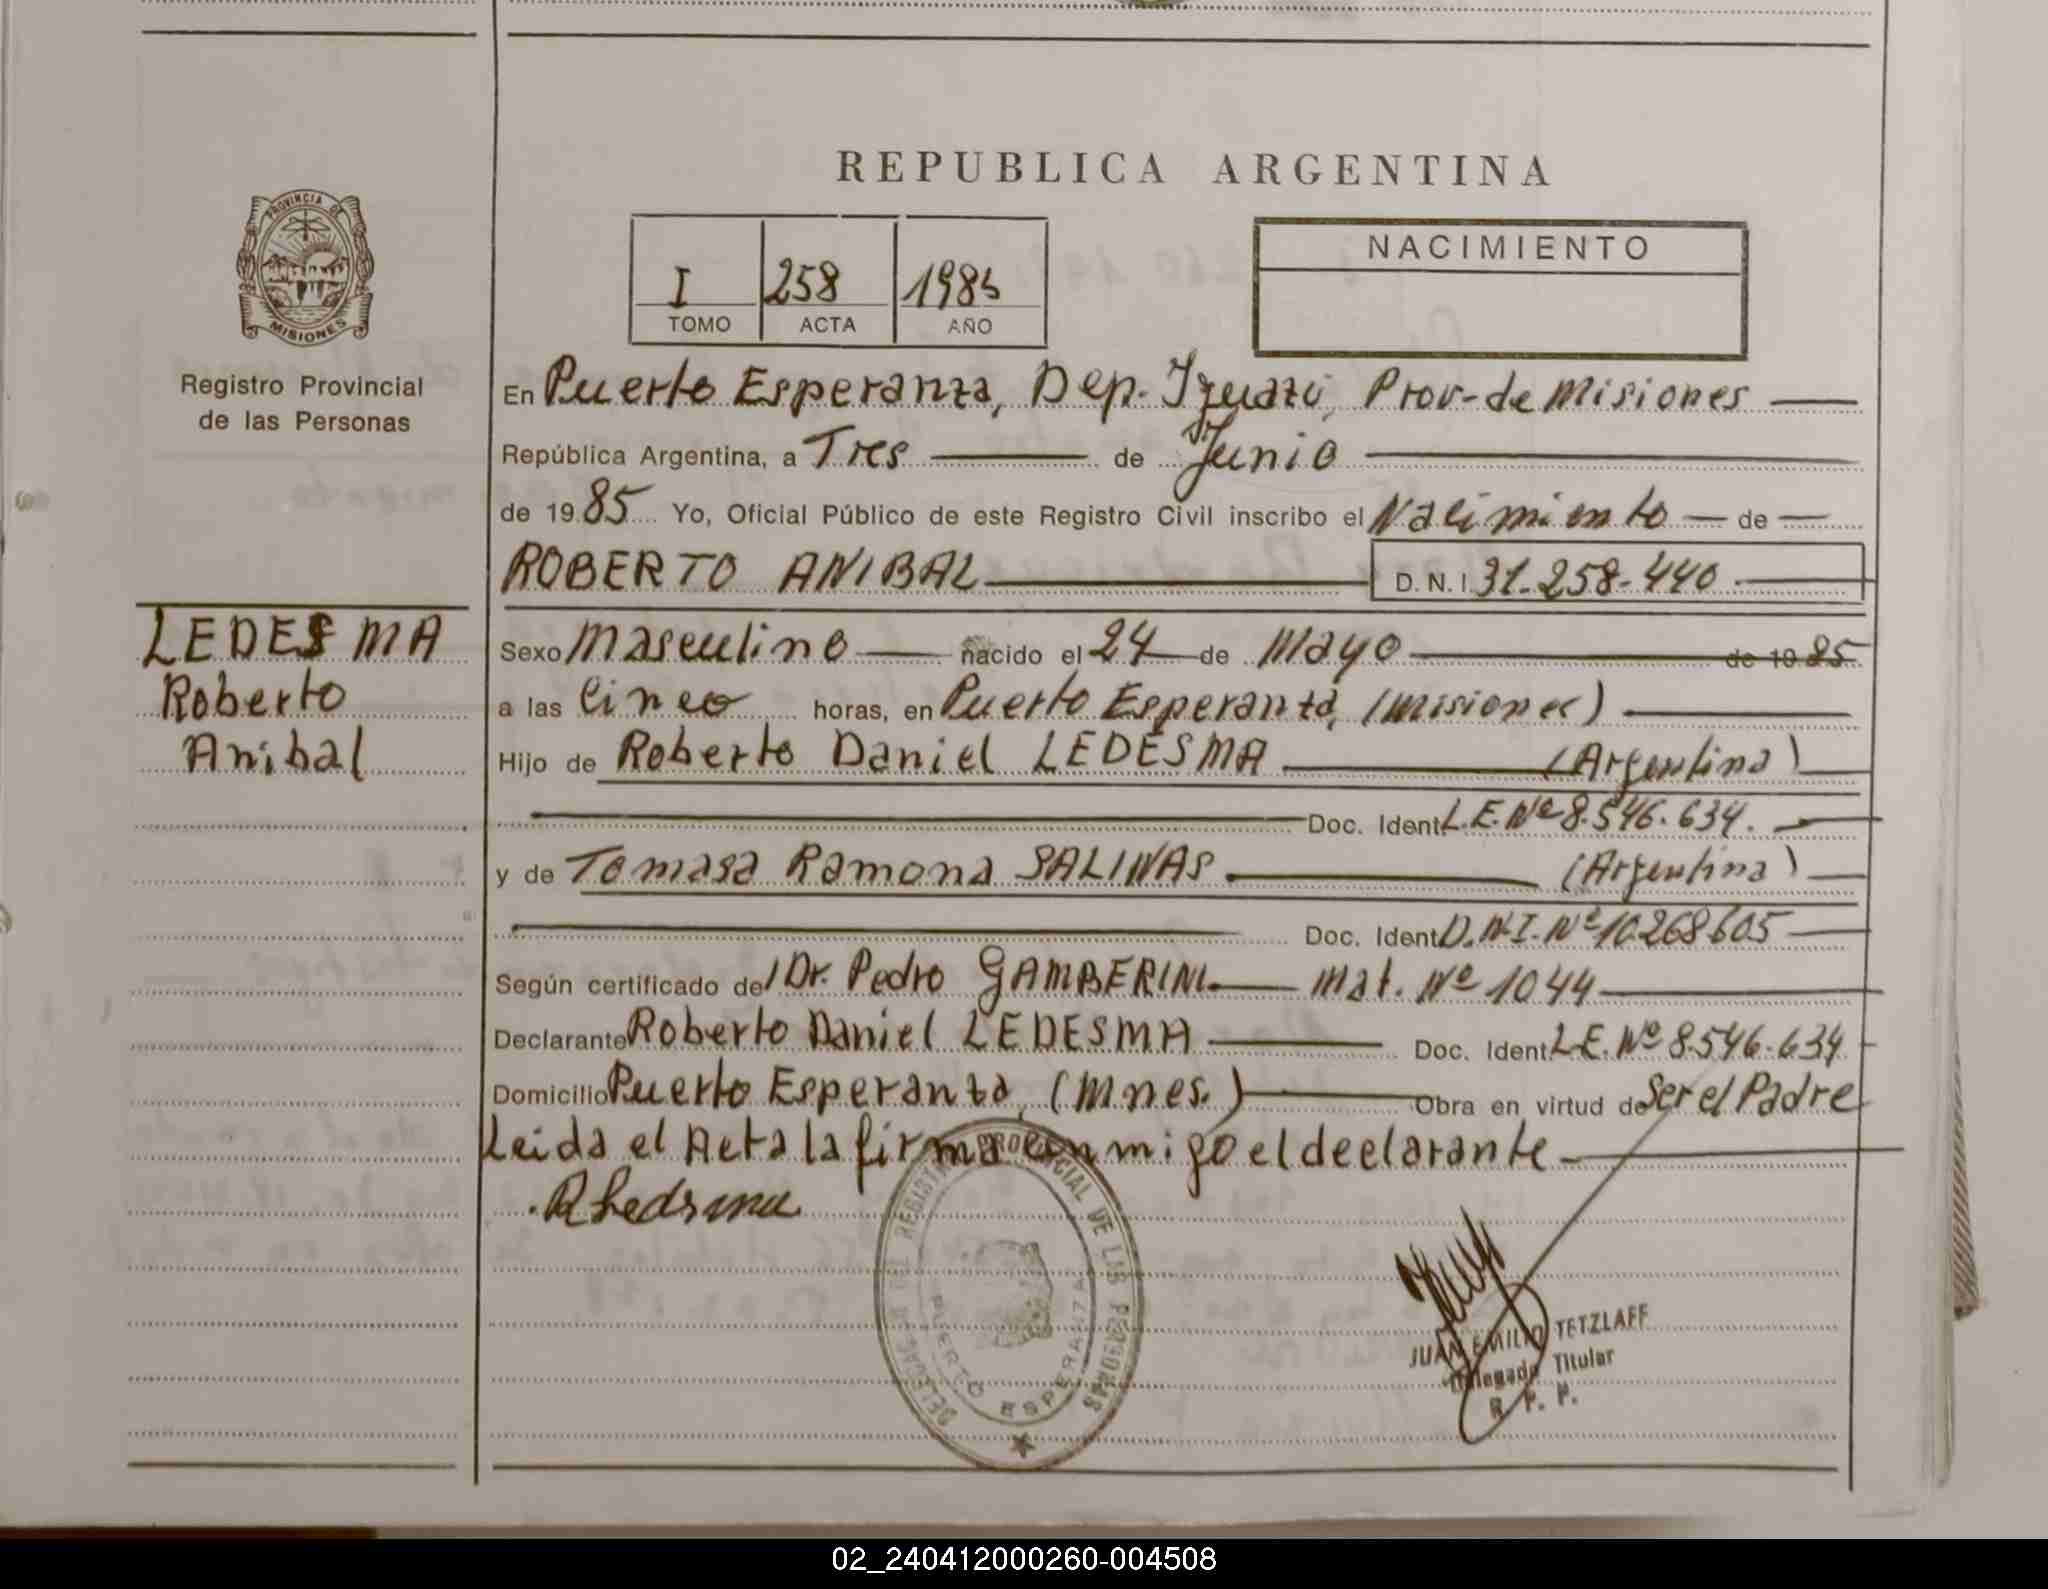 REPUBLICA ARGENTINA
PROVINCIA DE
MISIONES
Registro Provincial
de las Personas
I 258 1985
TOMO ACTA AÑO
NACIMIENTO
En Puerto Esperanza, Dep. Iguazú, Prov. de Misiones
República Argentina, a Tres de Junio
de 1985 Yo, Oficial Público de este Registro Civil inscribo el Nacimiento de
ROBERTO ANIBAL D.N.I. 31.258.440
LEDESMA
Roberto
Anibal
Sexo Masculino nacido el 24 de Mayo de 1985
a las Cinco horas, en Puerto Esperanza, (Misiones)
Hijo de Roberto Daniel LEDESMA (Argentina)
Doc. Ident L.E.Nº 8.546.634.
y de Tomasa Ramona SALINAS (Argentina)
Doc. Ident D.N.I. Nº 10.268.605
Según certificado de/ Dr. Pedro GAMBERINI Mat. Nº 1044
Declarante Roberto Daniel LEDESMA Doc. Ident L.E. Nº 8.546.634
Domicilio Puerto Esperanza, (Mnes.) Obra en virtud de Ser el Padre
Leida el Acta la firma conmigo el declarante
R Ledesma
DELEGACION DEL REGISTRO PROVINCIAL DE LAS PERSONAS
PUERTO ESPERANZA
JUAN EMILIO TETZLAFF
Delegado Titular
R. P. P.
02_240412000260-004508